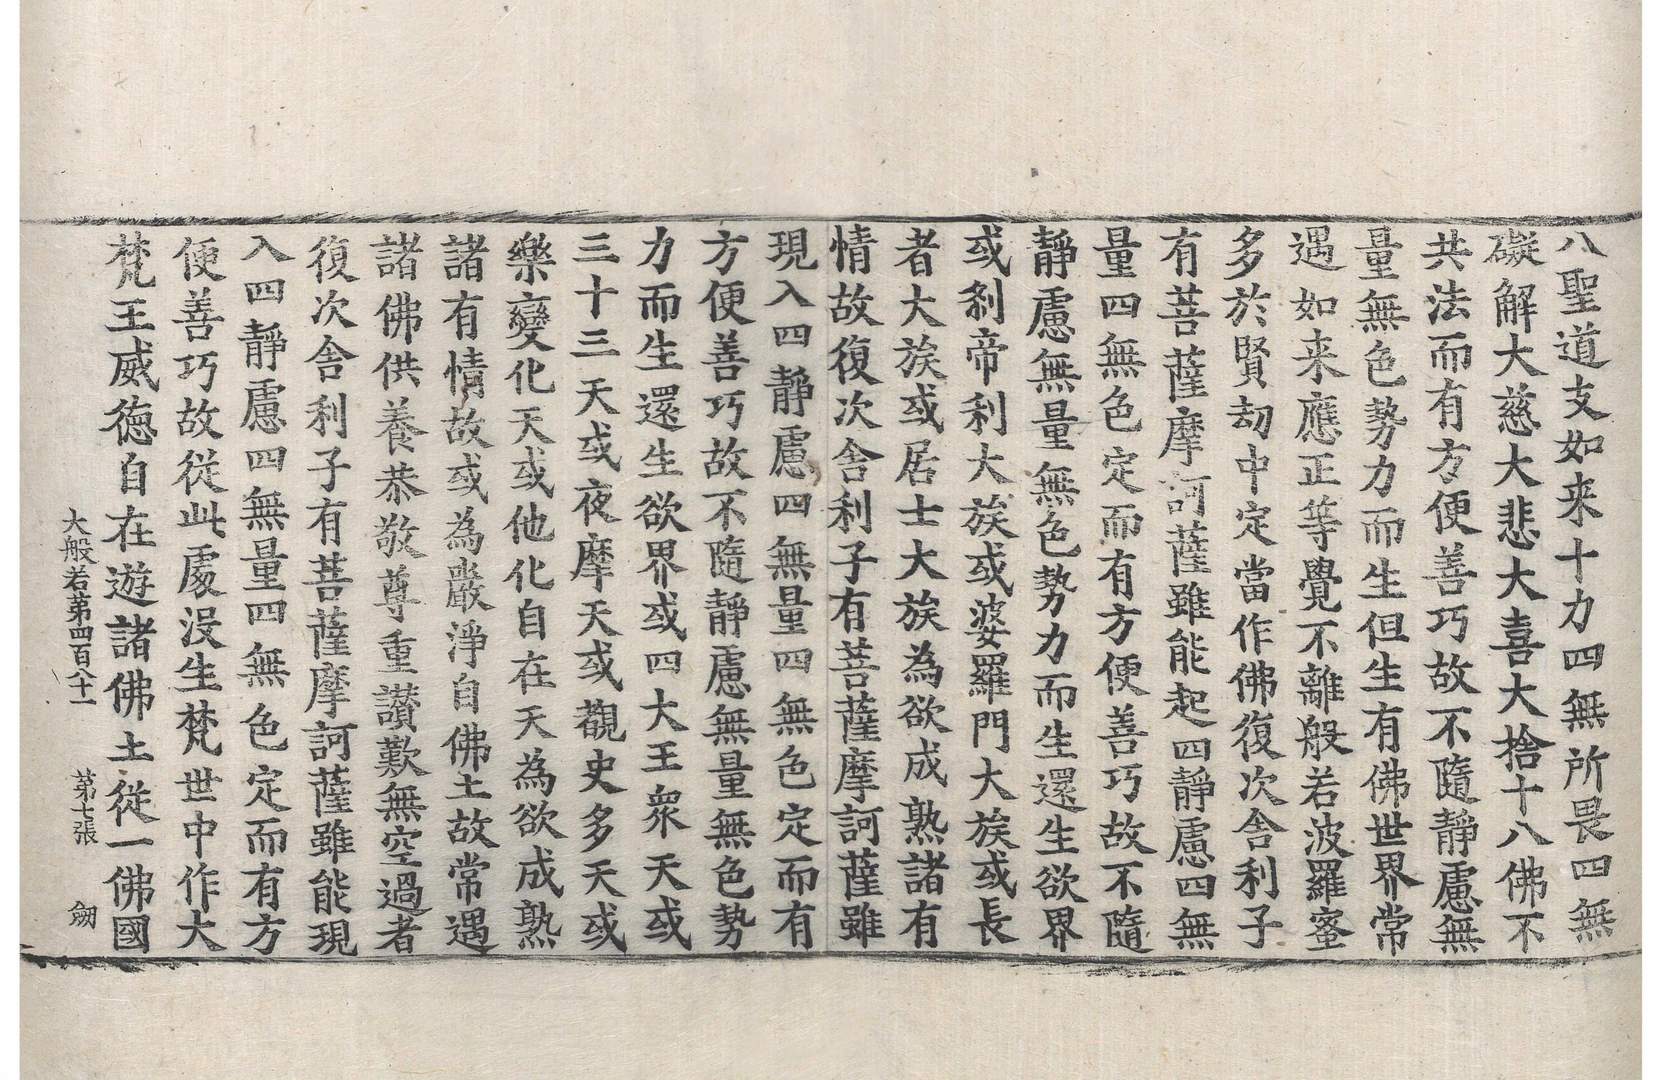 八聖道支如来十力四無所畏四無
礙解大慈大悲大喜大捨十八佛不
共法而有方便善巧故不隨靜慮無
量無色勢力而生但生有佛世界常
遇如来應正等覺不離般若波羅蜜
多於賢劫中定當作佛復次舍利子
有菩薩摩訶薩雖能起四靜慮四無
量四無色定而有方便善巧故不隨
靜慮無量無色勢力而生還生欲界
或剎帝利大族或婆羅門大族或長
者大族或居士大族為欲成熟諸有
情故復次舍利子有菩薩摩訶薩雖
現入四靜慮四無量四無色定而有
方便善巧故不隨靜慮無量無色勢
力而生還生欲界或四大王衆天或
三十三天或夜摩天或覩史多天或
樂變化天或他化自在天為欲成熟
諸有情故或為嚴淨自佛土故常遇
諸佛供養恭敬尊重讃歎無空過者
復次舍利子有菩薩摩訶薩雖能現
入四靜慮四無量四無色定而有方
便善巧故從此處没生梵世中作大
梵王威徳自在遊諸佛土從一佛國
大般若第四百八十一　第七張　劒